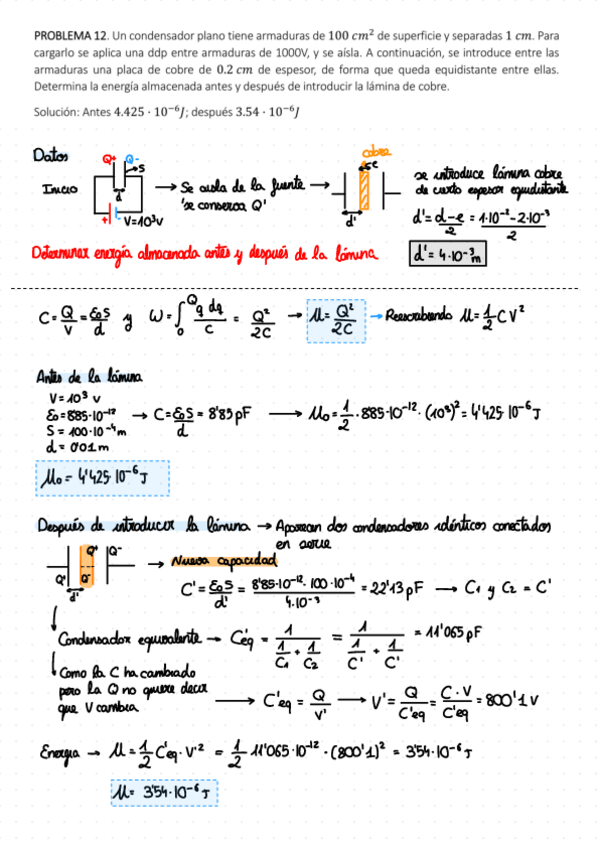 PROBLEMA 12. Un condensador plano tiene armaduras de 100 cm² de superficie y separadas 1 cm. Para
cargarlo se aplica una ddp entre armaduras de 1000V, y se aísla. A continuación, se introduce entre las
armaduras una placa de cobre de 0.2 cm de espesor, de forma que queda equidistante entre ellas.
Determina la energía almacenada antes y después de introducir la lámina de cobre.
Solución: Antes 4.425 · 10⁻⁶J; después 3.54 · 10⁻⁶J
Datos
Inicio
Q⁺ Q⁻
S
d
V=10³V
→ Se aisla de la fuente →
'se conserva Q'
cobre
e
d'
se introduce lámina cobre
de cierto espesor equidistante
d' = (d-e)/2 = (1·10⁻²-2·10⁻³)/2
d' = 4·10⁻³ m
Determinar energía almacenada antes y después de la lámina
C = Q/V = ε₀S/d y W = ∫₀^Q q dq/C = Q²/2C → U = Q²/2C → Reescribiendo U = 1/2 C V²
Antes de la lámina
V = 10³ V
ε₀ = 8'85·10⁻¹² → C = ε₀S/d = 8'85 pF → U₀ = 1/2 · 8'85·10⁻¹² · (10³)² = 4'425·10⁻⁶ J
S = 100·10⁻⁴ m
d = 0'01 m
U₀ = 4'425·10⁻⁶ J
Después de introducir la lámina → Aparecen dos condensadores idénticos conectados
en serie
Q⁺ Q⁻
Q⁺ Q⁻
d'
→ Nueva capacidad
C' = ε₀S/d' = 8'85·10⁻¹² · 100·10⁻⁴/4·10⁻³ = 22'13 pF → C₁ y C₂ = C'
Condensador equivalente → C'eq = 1/(1/C₁ + 1/C₂) = 1/(1/C' + 1/C') = 11'065 pF
Como la C ha cambiado
pero la Q no quiere decir
que V cambia
→ C'eq = Q/V' → V' = Q/C'eq = C·V/C'eq = 800'1 V
Energía → U = 1/2 C'eq · V'² = 1/2 11'065·10⁻¹² · (800'1)² = 3'54·10⁻⁶ J
U = 3'54·10⁻⁶ J